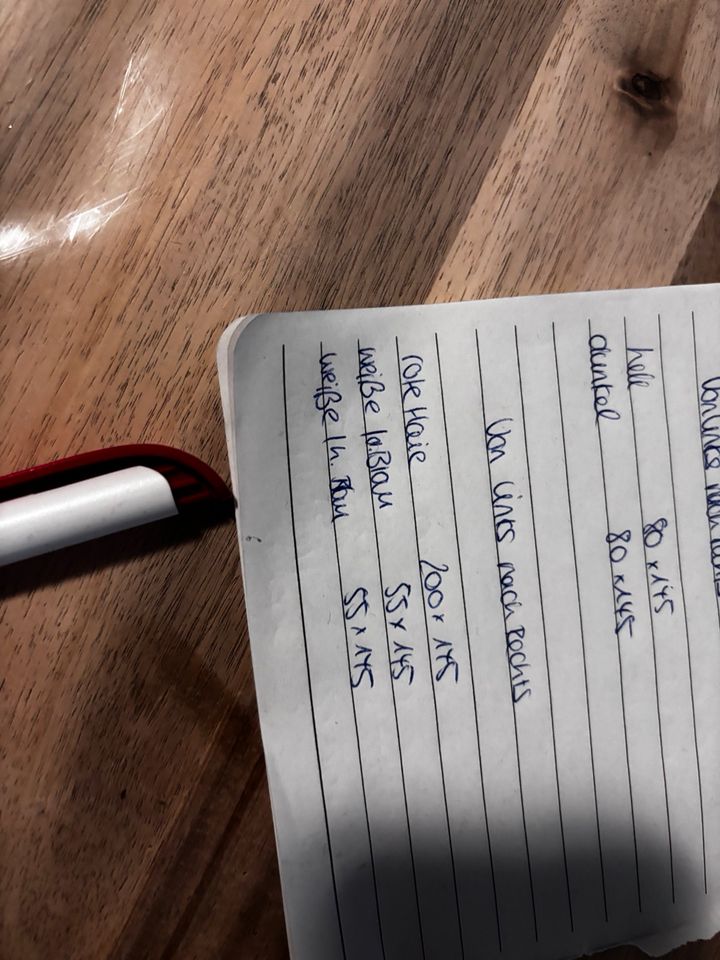 Von links nach
hell 80 x 145
dunkel 80 x 145
Von links nach Rechts
rote Haie 200 x 145
weiße H. Blau 55 x 145
weiße H. Blau 55 x 145